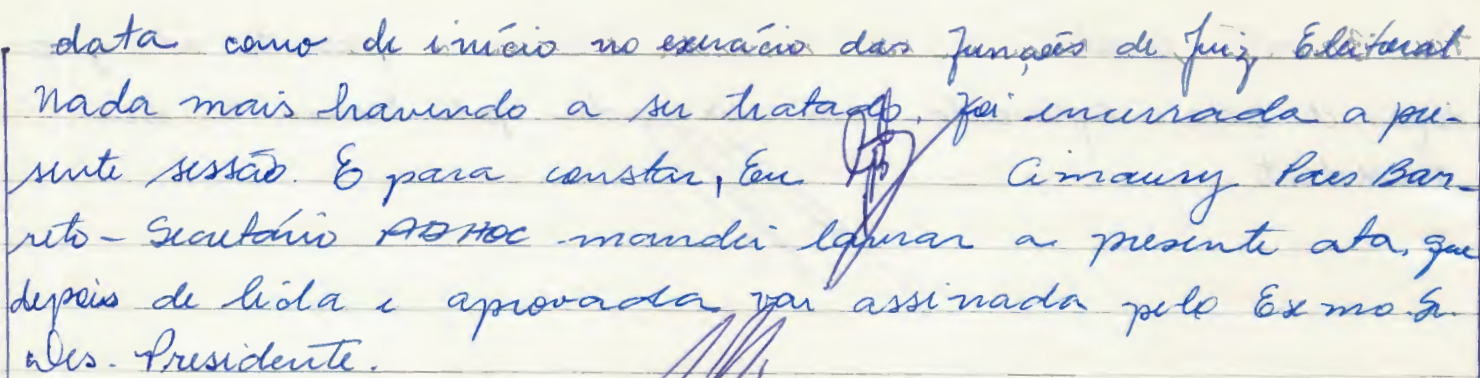 data como de início no exercício das funções de Juiz Eleitoral
Nada mais havendo a ser tratado, foi encerrada a pre-
sente sessão. E para constar, Eu Amaury Paes Bar-
reto - Secretário AD HOC mandei lavrar a presente ata, que
depois de lida e aprovada vai assinada pelo Exmo. Sr.
Des. Presidente.